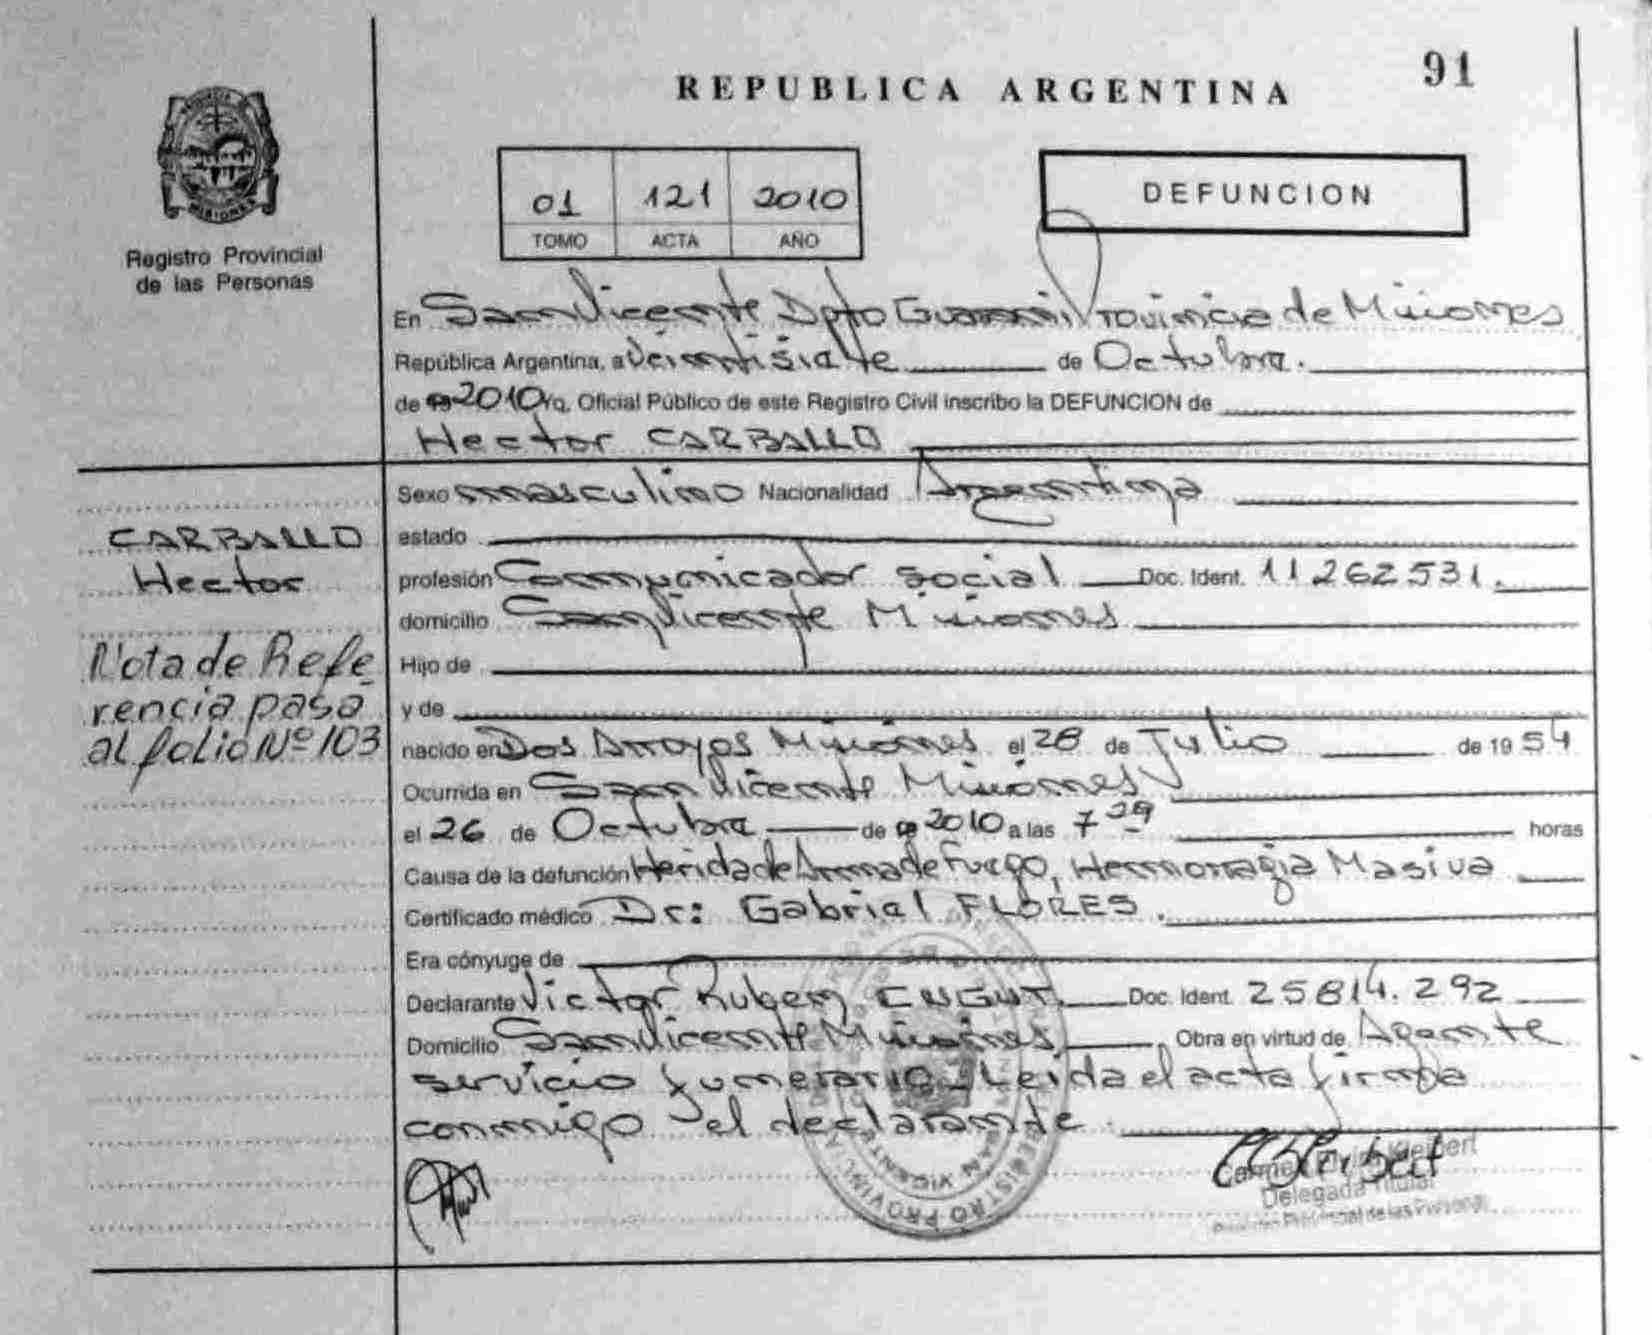 91
REPUBLICA ARGENTINA
MISIONES
Registro Provincial
de las Personas
01 121 2010
TOMO ACTA AÑO
DEFUNCION
En San Vicente Dpto Guarani Provincia de Misiones
República Argentina, a veintisiete de Octubre.
de 2010 Yo, Oficial Público de este Registro Civil inscribo la DEFUNCION de
Hector CARBALLO
Sexo masculino Nacionalidad Argentina
estado
profesión Comunicador social Doc. Ident. 11 262 531.
domicilio San Vicente Misiones
Hijo de
y de
nacido en Dos Arroyos Misiones el 28 de Julio de 1954
Ocurrida en San Vicente Misiones
el 26 de Octubre de 2010 a las 7 29 horas
Causa de la defunción Herida de Arma de Fuego, Hemorragia Masiva
Certificado médico Dr: Gabriel FLORES.
Era cónyuge de
Declarante Victor Ruben Doc. Ident. 25814.292
Domicilio San Vicente Misiones Obra en virtud de Agente
servicio funerario Leida el acta firma
conmigo el declarante.
CARBALLO
Hector
Nota de Refe
rencia pasa
al folio Nº 103
Delegada Titular
Registro Provincial de las Personas